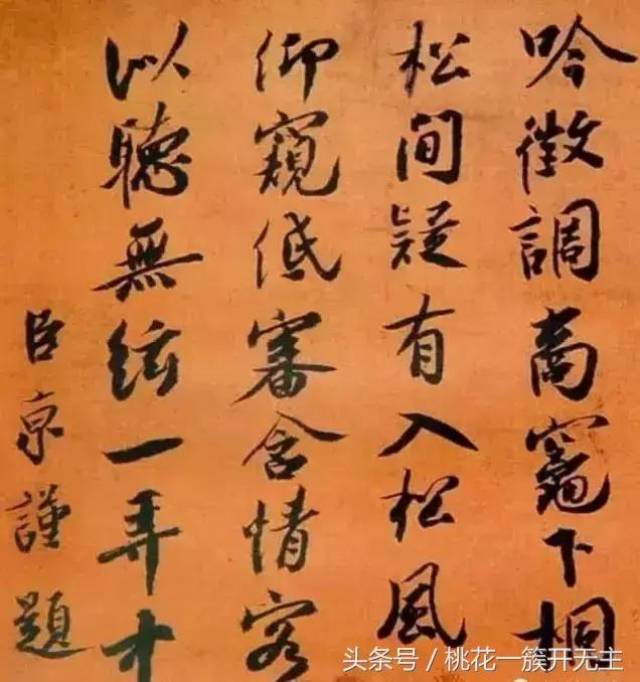 吟徵調商竈下桐
松間疑有入松風
仰窺低審含情客
似聽無絃一弄中
臣京謹題
头条号／桃花一簇开无主